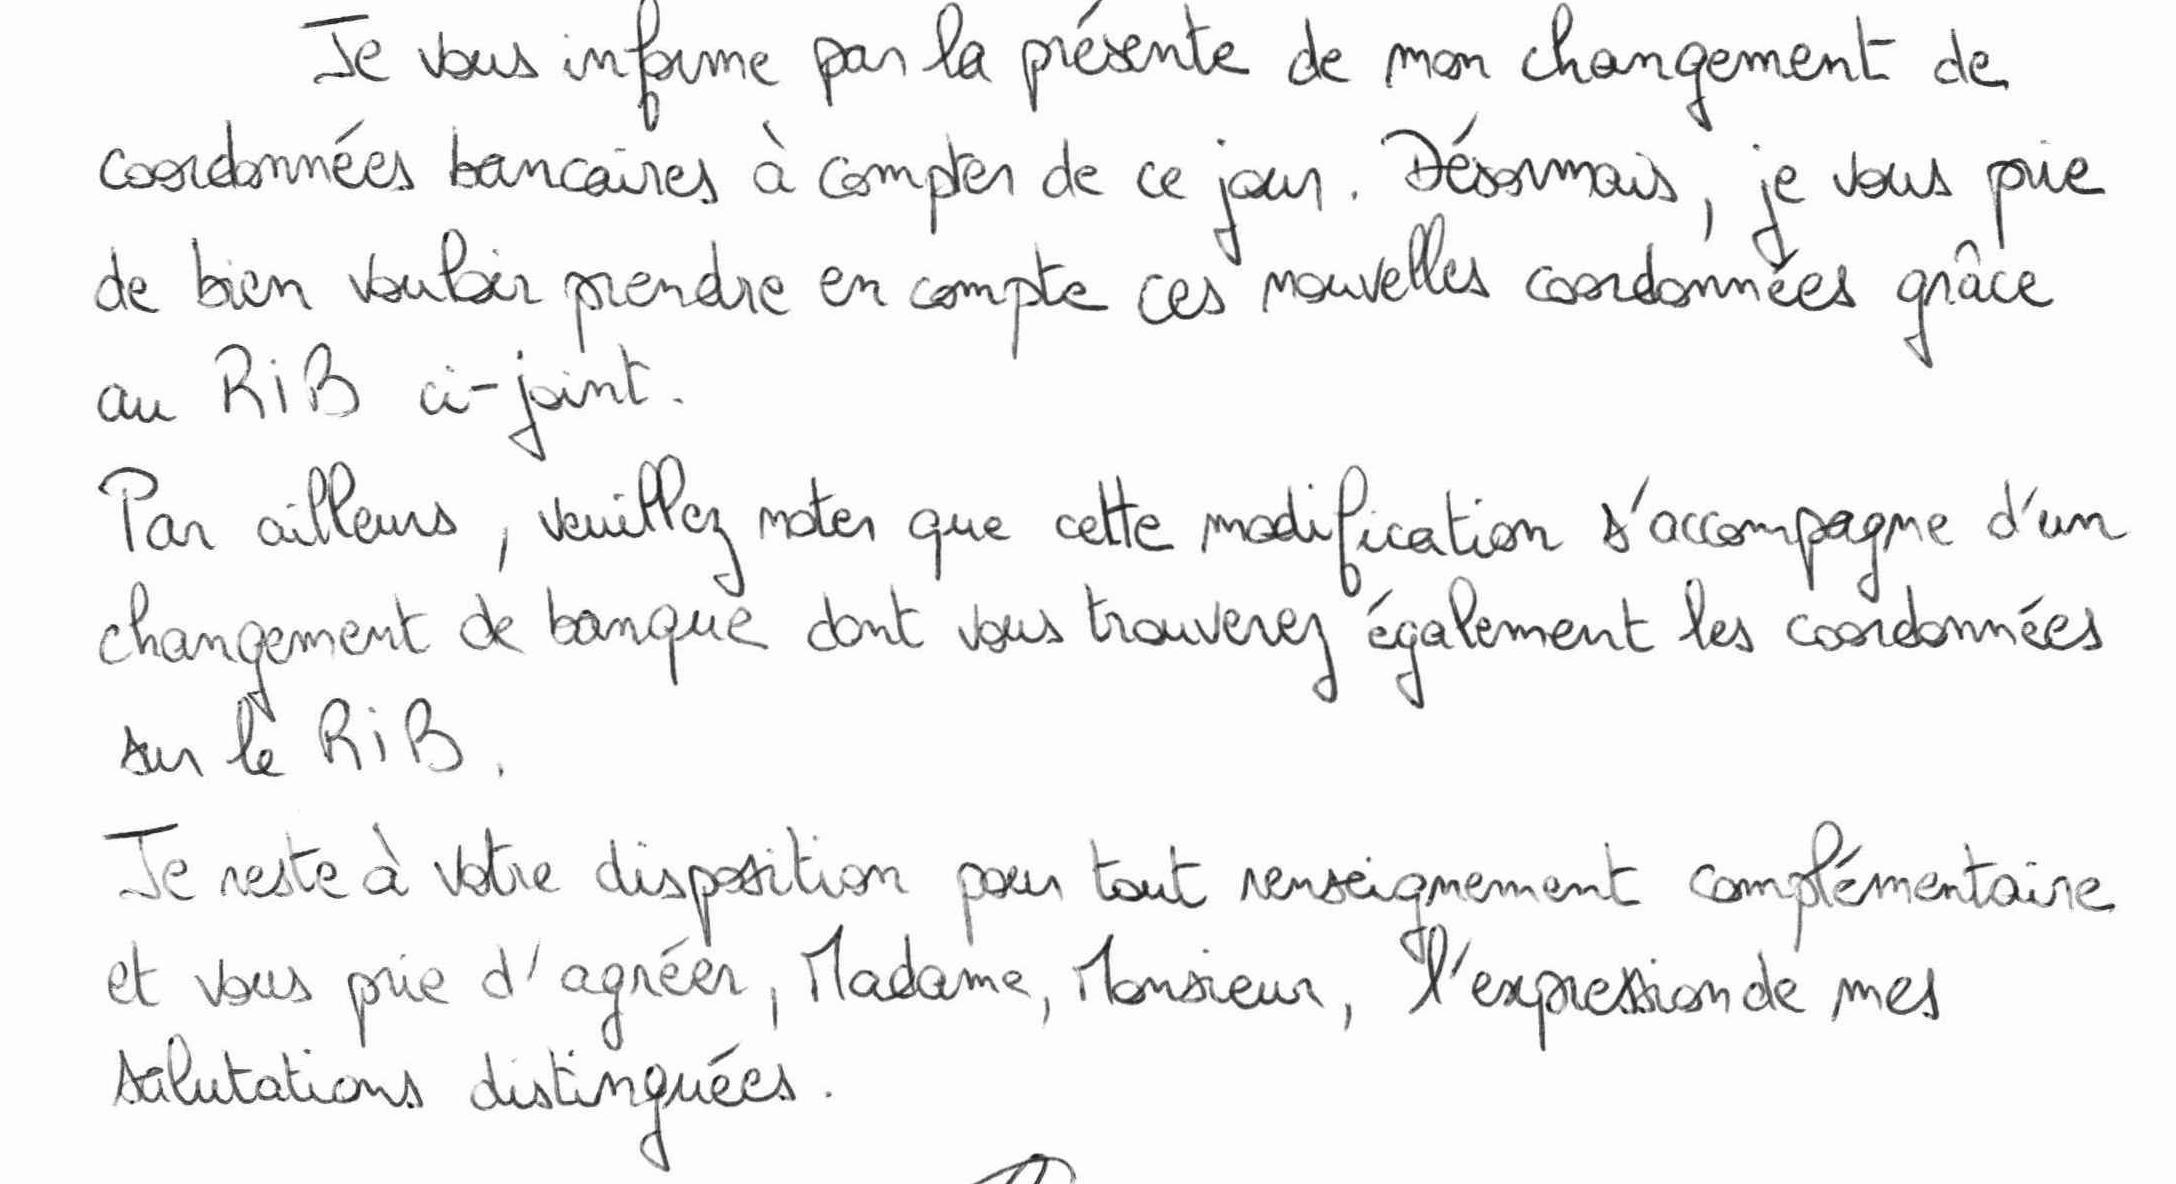 Je vous informe par la présente de mon changement de
coordonnées bancaires à compter de ce jour. Désormais, je vous prie
de bien vouloir prendre en compte ces nouvelles coordonnées grâce
au RiB ci-joint.
Par ailleurs, veuillez noter que cette modification s'accompagne d'un
changement de banque dont vous trouverez également les coordonnées
sur le RiB.
Je reste à votre disposition pour tout renseignement complémentaire
et vous prie d'agréer, Madame, Monsieur, l'expression de mes
salutations distinguées.